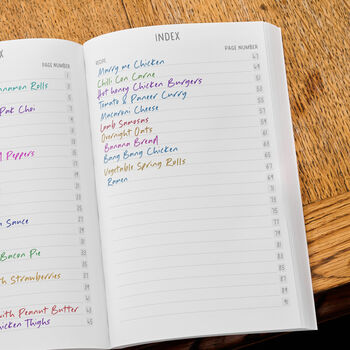 PAGE NUMBER
1
Rolls 3
5
Pak Choi 7
9
11
13
Peppers 15
17
19
21
23
25
Sauce 27
29
31
Bacon Pie 33
35
Strawberries 37
39
41
with Peanut Butter 43
Thighs 45
INDEX
RECIPE PAGE NUMBER
Marry me Chicken 47
Chilli Con Carne 49
Hot honey Chicken Burgers 51
Tomato & Paneer Curry 53
Macaroni Cheese 55
Lamb Samosas 57
Overnight Oats 59
Banana Bread 61
Bang Bang Chicken 63
Vegetable Spring Rolls 65
Ramen 67
69
71
73
75
77
79
81
83
85
87
89
91